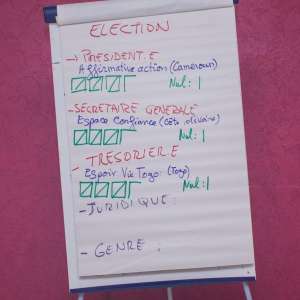 ELECTION
→ PRESIDENT.E
Affirmative action (Cameroun)
Nul: 1
- SECRETAIRE GENERALE
Espace Confiance (Côte d'ivoire)
Nul: 1
- TRESORIERE
Espoir Vie Togo (Togo)
Nul: 1
- JURIDIQUE:
- GENRE: